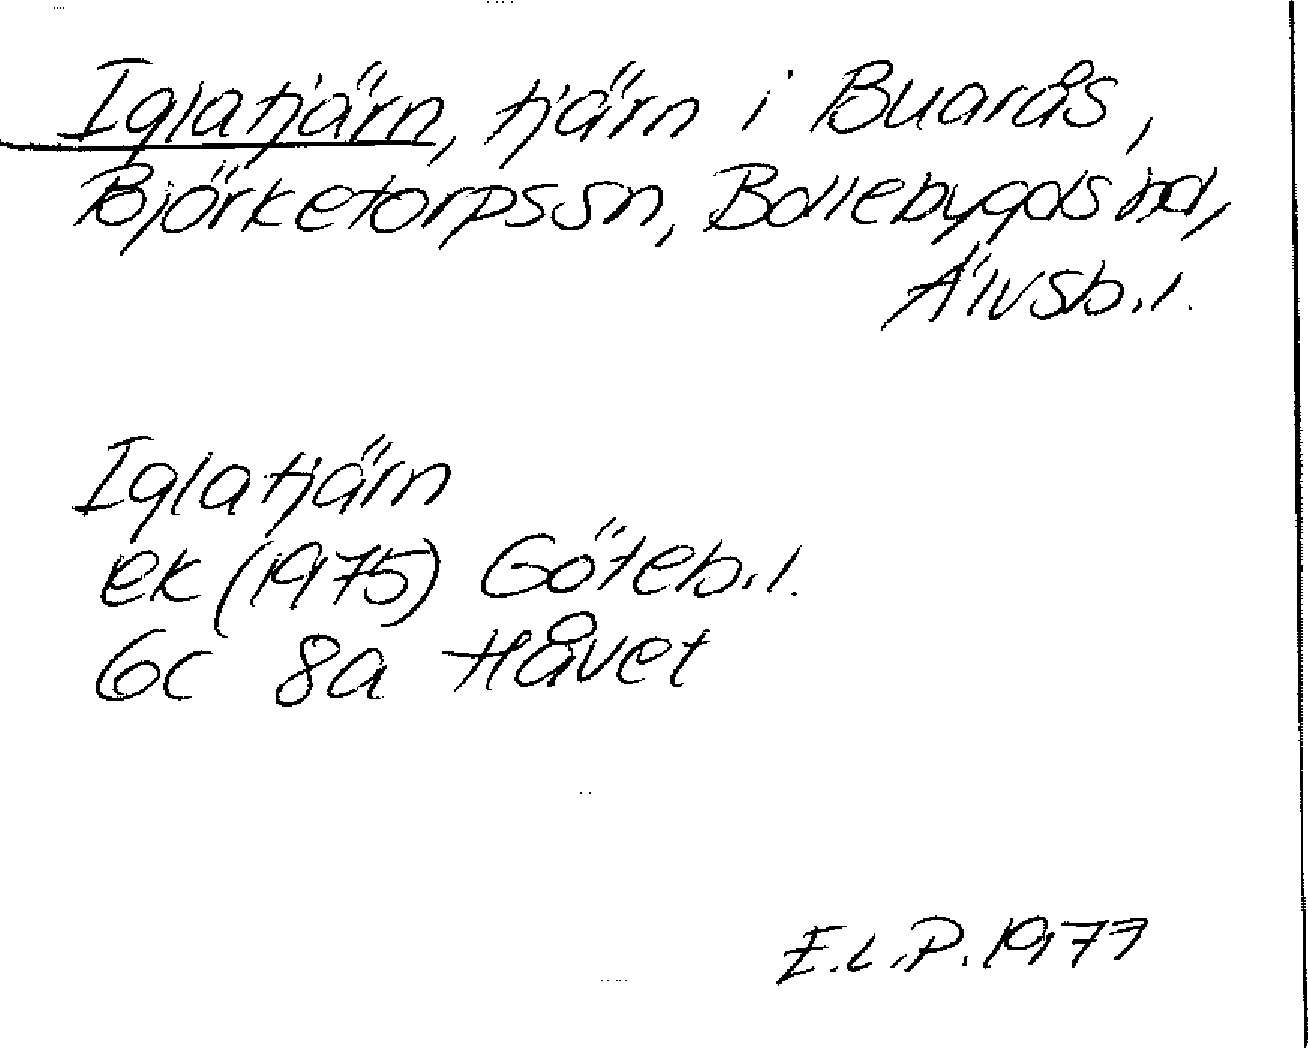 Iglatjärn, tjärn i Buarås,
Björketorps sn, Bollebygds hd,
Älvsb.l.
Iglatjärn
ek (1975) Göteb.l.
6c 8a Håvet
E.L.P. 1977